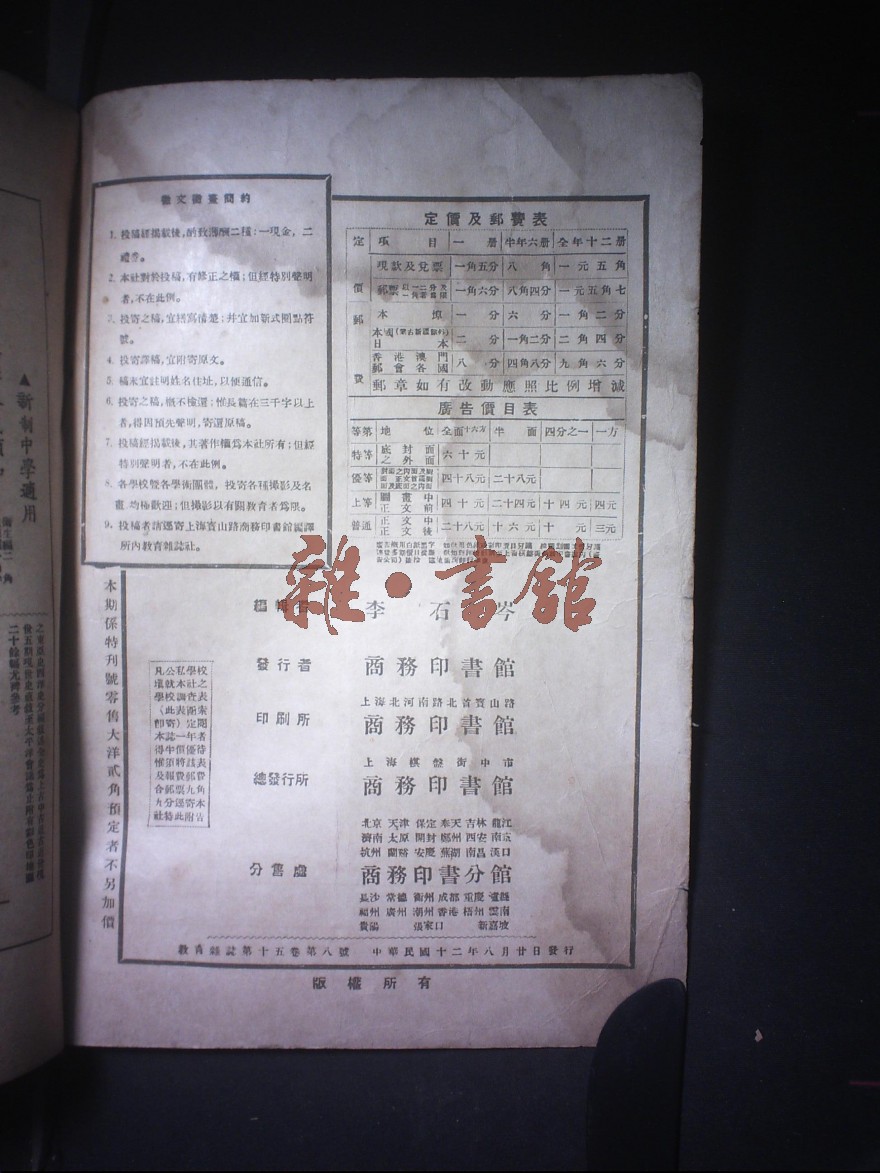 徵文徵畫簡約
1. 投稿經揭載後,酌致薄酬二種:一現金,二
禮券。
2. 本社對於投稿,有修正之權;但經特別聲明
者,不在此例。
3. 投寄之稿,宜繕寫清楚;并宜加新式圈點符
號。
4. 投寄譯稿,宜附寄原文。
5. 稿末宜註明姓名住址,以便通信。
6. 投寄之稿,概不檢還;惟長篇在三千字以上
者,得因預先聲明,寄還原稿。
7. 投稿經揭載後,其著作權為本社所有;但經
特別聲明者,不在此例。
8. 各學校暨各學術團體,投寄各種攝影及名
畫,均極歡迎;但攝影以有關教育者為限。
9. 投稿者請逕寄上海寶山路商務印書館編譯
所內教育雜誌社。
定價及郵費表
定 項目 一册 半年六册 全年十二册
現款及兌票 一角五分 八角 一元五角
價 郵票 一角六分 八角四分 一元五角七
郵 本埠 一分 六分 一角二分
本國(蒙古新疆除外)
日本 二分 一角二分 二角四分
香港澳門
郵會各國 八分 四角八分 九角六分
費 郵章如有改動應照比例增減
廣告價目表
等第 地位 全面十六方 半面 四分之一 一方
特等 底封面之外面 六十元
優等 四十八元 二十八元
上等 圖畫中正文前 四十元 二十四元 十四元 四元
普通 正文中正文後 二十八元 十六元 十元 三元
雜·書館
編輯者 李石岑
發行者 商務印書館
上海北河南路北首寶山路
印刷所 商務印書館
上海棋盤街中市
總發行所 商務印書館
北京 天津 保定 奉天 吉林 龍江
濟南 太原 開封 鄭州 西安 南京
杭州 蘭谿 安慶 蕪湖 南昌 漢口
分售處 商務印書分館
長沙 常德 衡州 成都 重慶 瀘縣
福州 廣州 潮州 香港 梧州 雲南
貴陽 張家口 新嘉坡
凡公私學校
填就本社之
學校調查表
(此表函索
即寄)定閱
本誌一年者
得半價優待
惟須將該表
及報費郵費
合郵票九角
九分逕寄本
社特此附告
本期係特刊號零售大洋貳角預定者不另加價
教育雜誌第十五卷第八號 中華民國十二年八月廿日發行
版權所有
▲新制中學適用